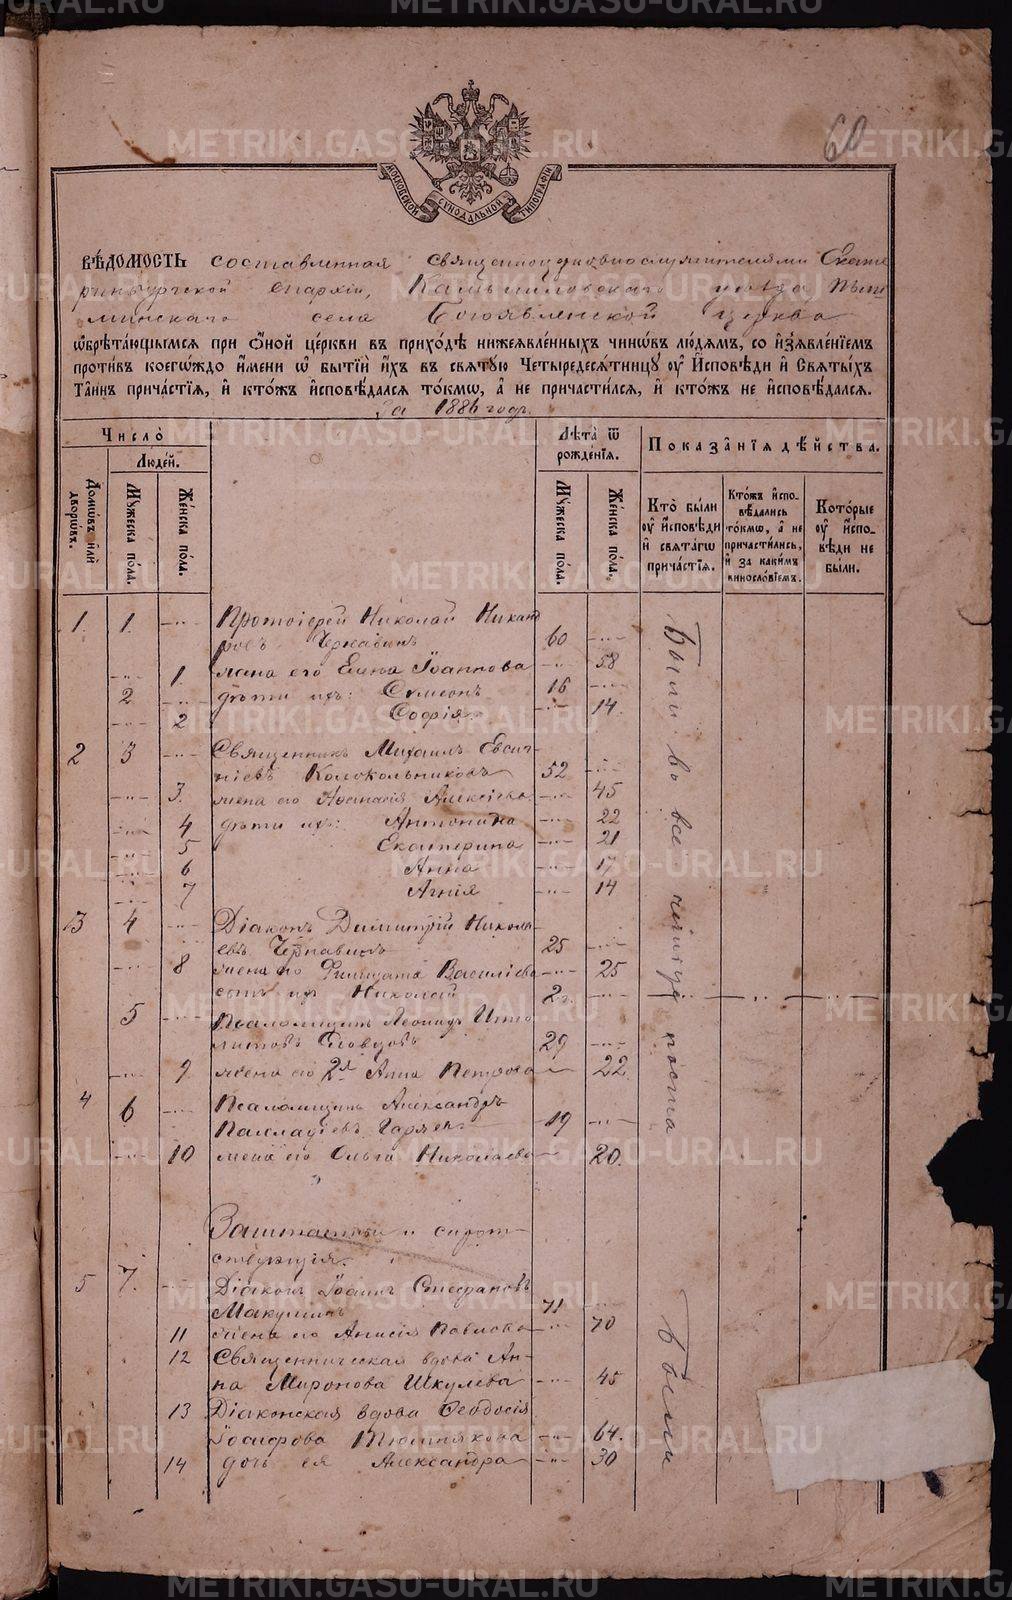 60
МОСКОВСКОЙ СѴНОДАЛЬНОЙ ТИПОГРАФІИ
ВѢДОМОСТЬ составленная священноцерковнослужителями Екате
ринбургской епархіи, Камышловскаго уѣзда, Пыш
минскаго села Богоявленской церкви
ѡ҆брѣта́ющымсѧ при ѻ҆́ной це́ркви въ прихо́дѣ нижеѧвле́нныхъ чинѡ́въ лю́демъ, со и҆з̾ѧвле́нїемъ
про́тивъ коегѡ́ждо и҆́мени ѡ҆ бытїѝ и҆́хъ въ свѧту́ю Четыредесѧ́тницꙋ ᲂу҆ И҆́сповѣди и҆ Свѧты́хъ
Та́инъ прича́стїѧ, и҆ кто́жъ и҆сповѣ́далсѧ то́кмѡ, а҆ не причасти́лсѧ, и҆ кто́жъ не и҆сповѣ́далсѧ.
За 1886 годъ.
Число̀ Лѣ́та ѿ рожде́нїѧ. Показа̑нїѧ дѣ́йства.
Люде́й.
Домѡ́въ и҆лѝ дворѡ́въ. Мꙋ́жеска по́ла. Же́нска по́ла. Мꙋ́жеска по́ла. Же́нска по́ла. Кто̀ бы́ли ᲂу҆ и҆́сповѣди и҆ свѧта́гѡ прича́стїѧ. Кто́жъ и҆сповѣ́дались то́кмѡ, а҆ не причасти́лись, и҆ за каки́мъ виносло́вїемъ. Кото́рые ᲂу҆ и҆́сповѣди не бы́ли.
1. 1. Протоіерей Николай Никанд
ровъ Чернавинъ 60
1. жена его Елена Іоаннова 58
2 дѣти ихъ: Сумеонъ 16
2 Софія. 14.
2 3 Священникъ Михаилъ Евси
ніевъ Колокольниковъ 52
3. жена его Аѳанасія Алексіева 45
4 дѣти ихъ: Антонина 22
5 Екатерина 21
6 Анна 17
7 Агнія 14
3 4 Діаконъ Димитрій Никола
евъ Чернавинъ 25
8 жена его Василіева 25
сынъ ихъ Николай 2 г.
5 Псаломщикъ Леонидъ Иппо
литовъ Словцовъ 29
9 жена его 2я Анна Петрова 22.
4 6 Псаломщикъ Александръ
Палладіевъ 19
10 жена его Ольга Николаева 20.
Были во все поста
Заштатные и сирот
ствующія.
5 7. Діаконъ Іоаннъ Стефановъ
Макушинъ 71
11 жена его Анисія Павлова 70
12 Священническая вдова Ан-
на Миронова Шкулева 45
13 Діаконская вдова Ѳеодосія
Іосифова 64.
14 дочь ея Александра 30
Были
METRIKI.GASO-URAL.RU